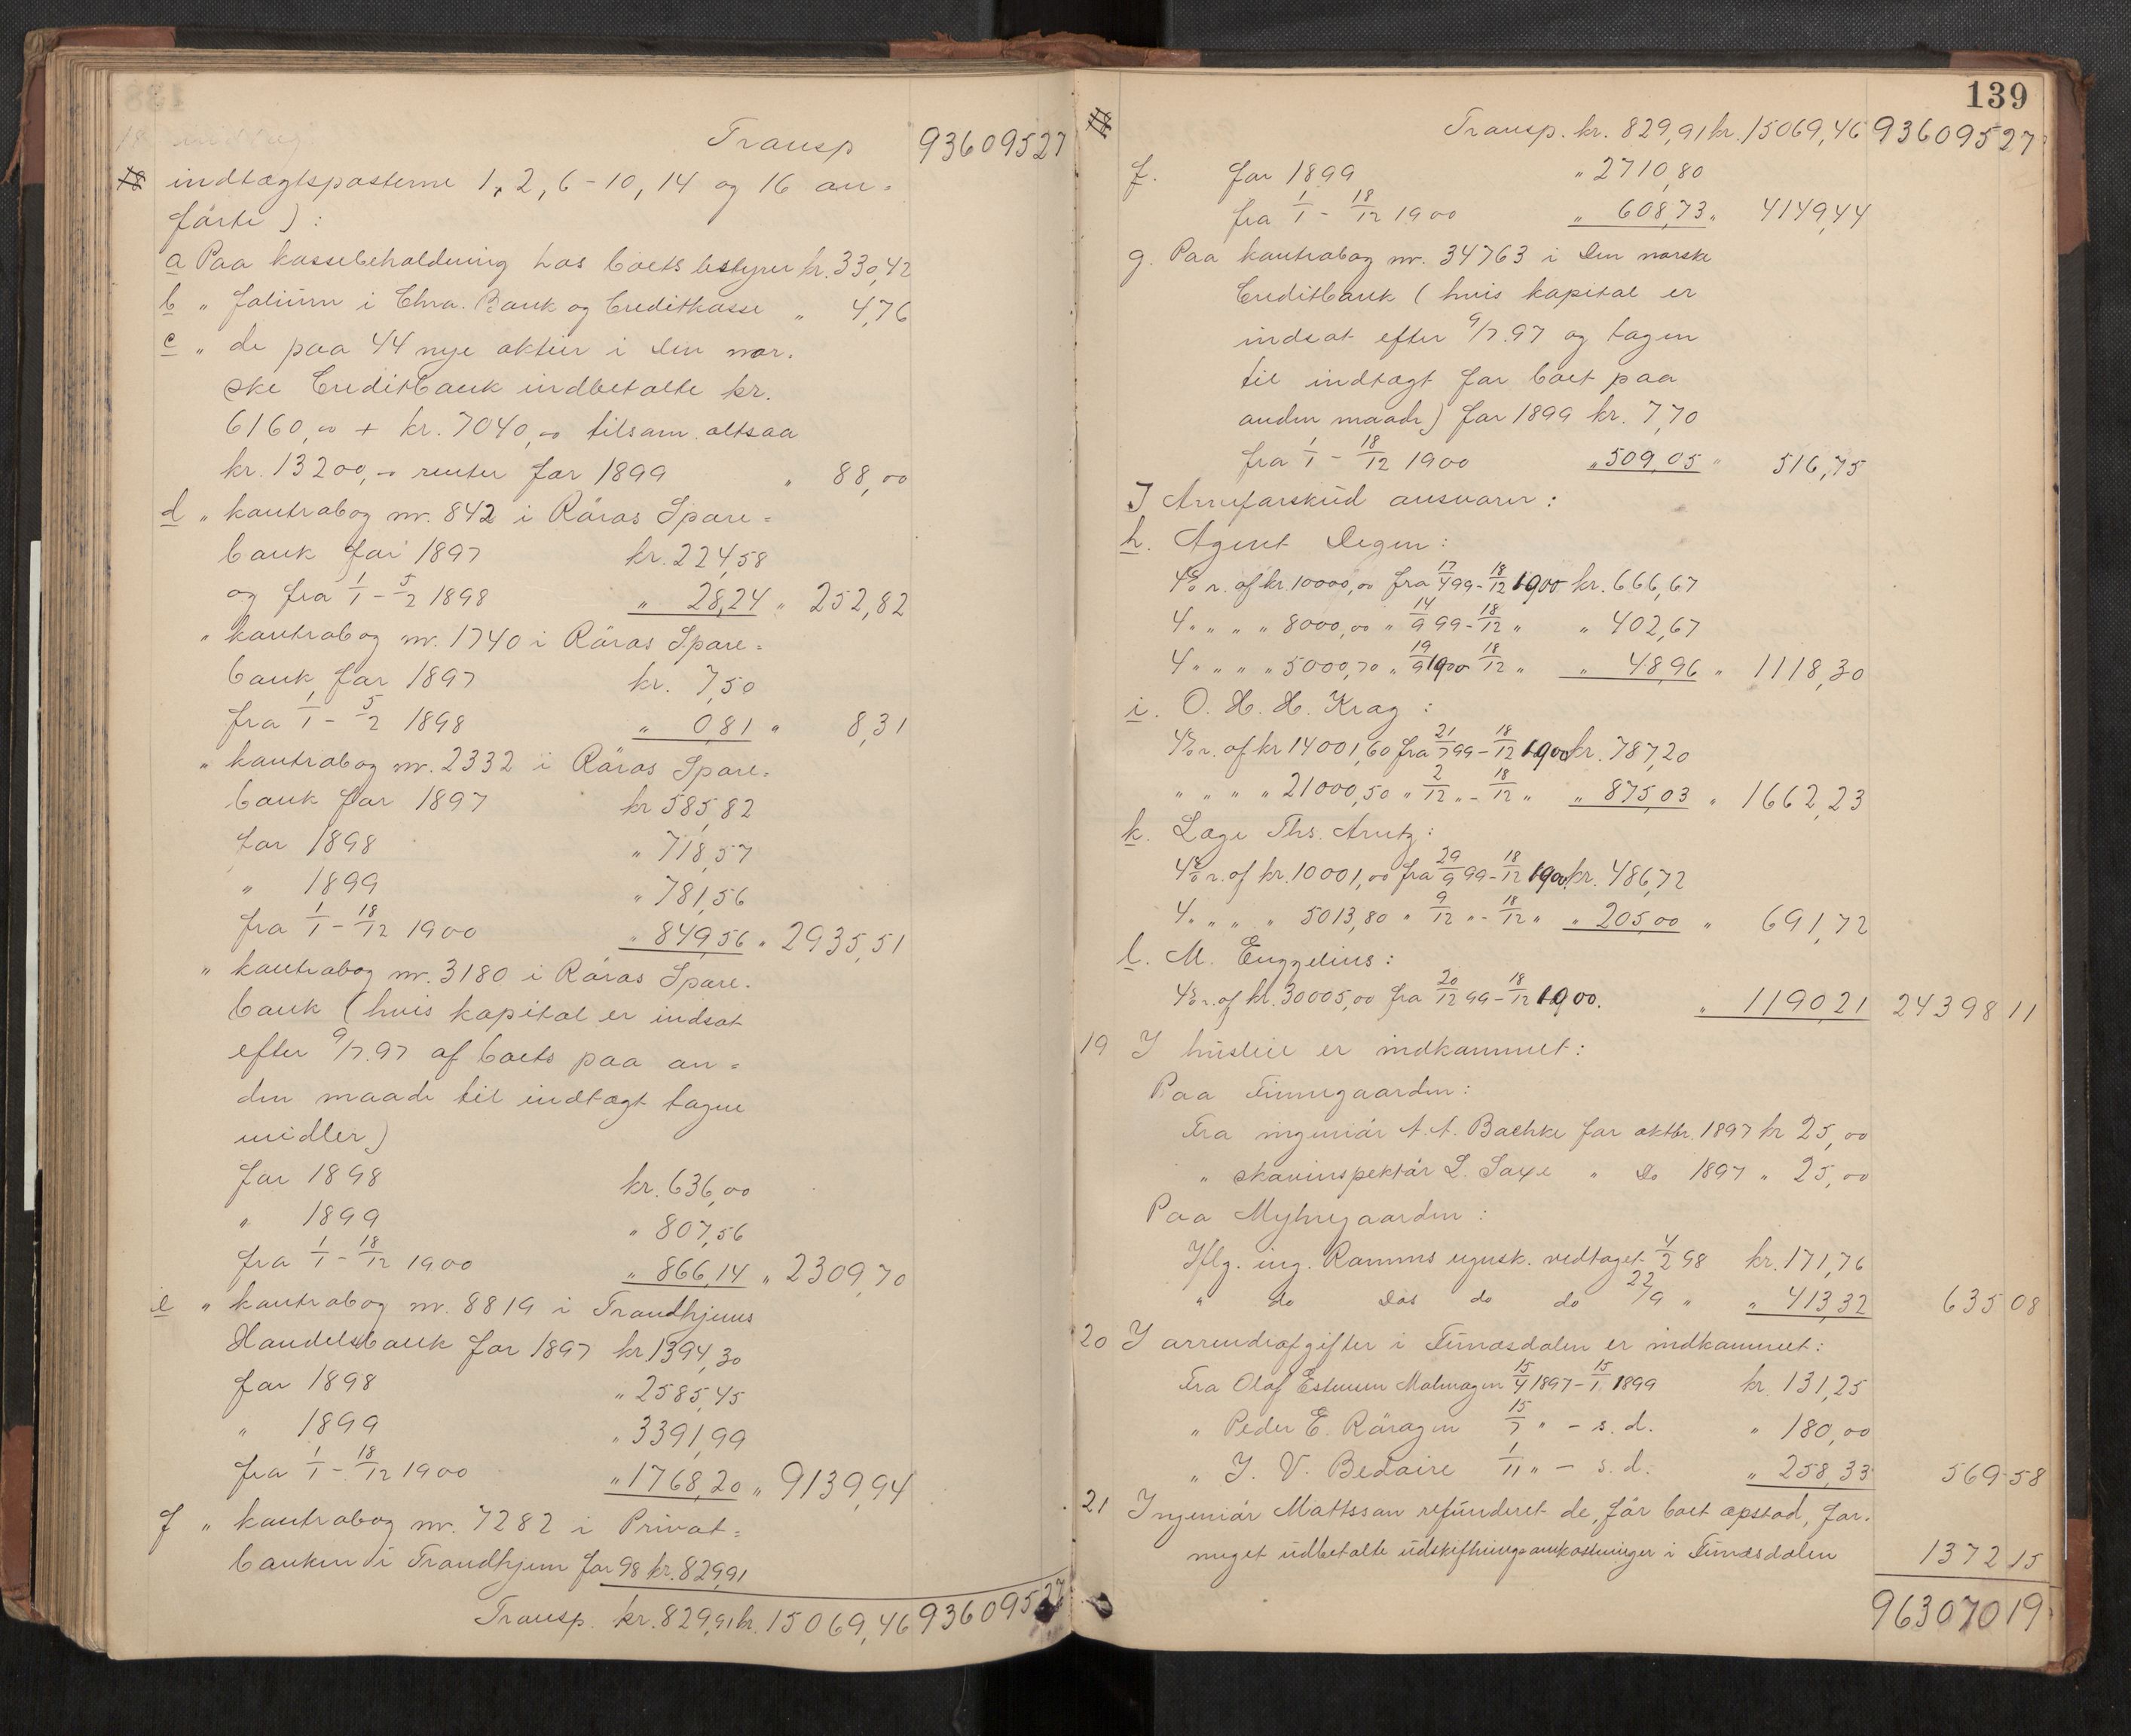 Transp 93609527
18 indtægtsposterne 1, 2, 6-10, 14 og 16 an=
førte):
a Paa kassebeholdning hos boets bestyrer kr. 330,42
b " folium i Chra. Bank og Creditkasse " 4,76
c " de paa 44 nye aktier i Den nor-
ske Creditbank indbetalte kr.
6160,00 + kr. 7040,00 tilsam. altsaa
kr. 13200,00 renter for 1899 " 88,00
d " kontrabog nr. 842 i Røros Spare=
bank for 1897 kr. 224,58
og fra 1/1 - 5/2 1898 " 28,24 " 252,82
" kontrabog nr. 1740 i Røros Spare=
bank for 1897 kr. 7,50
fra 1/1 - 5/2 1898 " 0,81 " 8,31
" kontrabog nr. 2332 i Røros Spare=
bank for 1897 kr 585,82
for 1898 " 718,57
" 1899 " 781,56
fra 1/1 - 18/12 1900 " 849,56 " 2935,51
" kontrabog nr. 3180 i Røros Spare-
bank (hvis kapital er indsat
efter 9/7.97 af boets paa an=
den maade til indtægt tagne
midler)
for 1898 kr. 636,00
" 1899 " 807,56
fra 1/1 - 18/12 1900 " 866,14 " 2309,70
e " kontrabog nr. 8819 i Trondhjems
Handelsbank for 1897 kr. 1394,30
for 1898 " 2585,45
" 1899 " 3391,99
fra 1/1 - 18/12 1900 " 1768,20 " 9139,94
f " kontrabog nr. 7282 i Privat=
banken i Trondhjem for 98 kr. 829,91
Transp. kr. 829,91 kr. 15069,46 93609527
139
18 Transp. kr. 829,91 kr. 15069,46 93609527
f. for 1899 " 2710,80
fra 1/1 - 18/12 1900 " 608,73 " 4149,44
g. Paa kontrabog nr. 34763 i Den norske
Creditbank (hvis kapital er
indsat efter 9/7.97 og tagen
til indtægt for boet paa
anden maade) for 1899 kr. 7,70
fra 1/1 - 18/12 1900 " 509,05 " 516,75
I Arveforskud ansvarer:
h. Agent Degen:
4% r. af kr. 10000,00 fra 17/4 99 - 18/12 1900 kr. 666,67
4 " " " " 8000,00 " 14/9 99 - 18/12 " " 402,67
4 " " " " 5000,70 " 19/9 1900 18/12 " " 48,96 " 1118,30
i. O. H. H. Krag:
4% r. af kr 14001,60 fra 21/7 99 - 18/12 1900 kr. 787,20
" " " " 21000,50 " 2/12 " - 18/12 " " 875,03 " 1662,23
k. Læge Ths. Arntz:
4% r. af kr. 10001,00 fra 29/9 99 - 18/12 1900 kr. 486,72
4 " " " 5013,80 " 9/12 " - 18/12 " " 205,00 " 691,72
l. M. Engzelius:
4% r. af kr. 30005,00 fra 20/12 99 - 18/12 1900. " 1190,21 2439811
19 I husleie er indkommet:
Paa Finnegaarden:
Fra ingeniør A. A. Bachke for oktbr. 1897 kr 25,00
" skovinspektør L. Saxe " Do 1897 " 25,00
Paa Myhregaarden:
Iflg. ing. Ramms regnsk. vedtaget 4/2 98 kr. 171,76
" do Dos do do 22/9 " " 413,32 63508
20 I arrendeafgifter i Funæsdalen er indkommet:
Fra Olof Estensen Malmagen 15/4 1897 - 15/1 1899 kr. 131,25
" Peder E. Røragen 15/7 " - s. d. " 180,00
" J. V. Bedoire 1/11 " - s. d. " 258,33 56958
21 Ingeniør Mattsson refunderet de, før boet opstod, for-
meget udbetalte udskiftningsomkostninger i Funæsdalen 137215
96307019